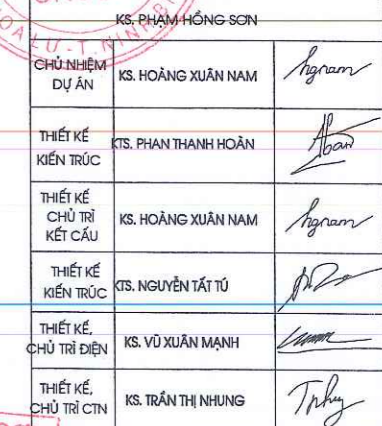 KS. PHẠM HỒNG SƠN
OA LƯ - T. NINH B
CHỦ NHIỆM
DỰ ÁN
KS. HOÀNG XUÂN NAM
THIẾT KẾ
KIẾN TRÚC
KTS. PHAN THANH HOÀN
THIẾT KẾ
CHỦ TRÌ
KẾT CẤU
KS. HOÀNG XUÂN NAM
THIẾT KẾ
KIẾN TRÚC
KTS. NGUYỄN TẤT TÚ
THIẾT KẾ,
CHỦ TRÌ ĐIỆN
KS. VŨ XUÂN MẠNH
THIẾT KẾ,
CHỦ TRÌ CTN
KS. TRẦN THỊ NHUNG